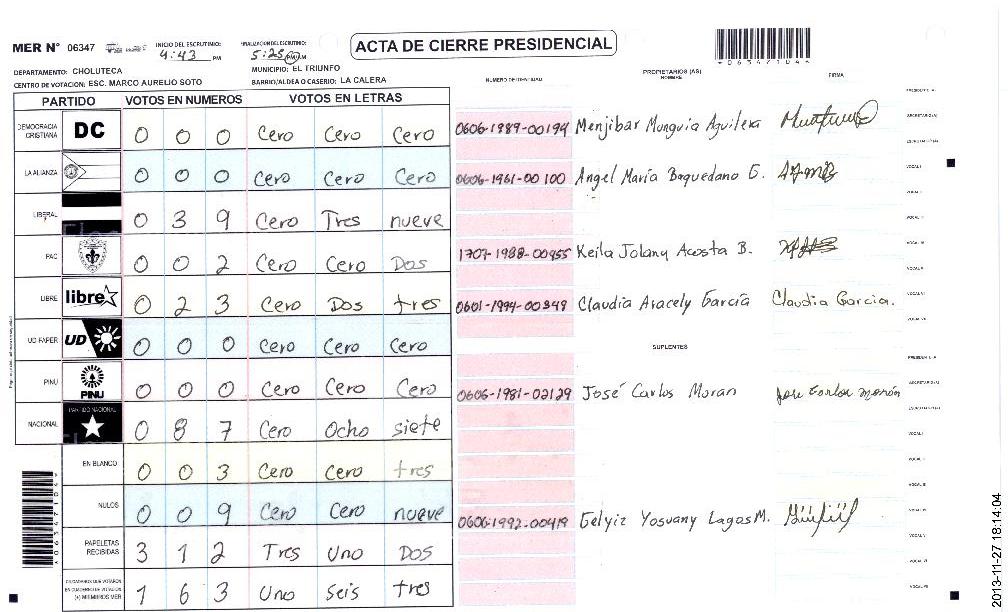 MER N° 06347
INICIO DEL ESCRUTINIO: 4:43 PM
FINALIZACION DEL ESCRUTINIO: 5:25 PM/AM
ACTA DE CIERRE PRESIDENCIAL
DEPARTAMENTO: CHOLUTECA
MUNICIPIO: EL TRIUNFO
CENTRO DE VOTACION: ESC. MARCO AURELIO SOTO
BARRIO/ALDEA O CASERIO: LA CALERA
NUMERO DE IDENTIDAD
PROPIETARIOS (AS)
NOMBRE
FIRMA
PARTIDO VOTOS EN NUMEROS VOTOS EN LETRAS
DEMOCRACIA CRISTIANA DC 0 0 0 Cero Cero Cero
LA ALIANZA 0 0 0 Cero Cero Cero
LIBERAL 0 3 9 Cero Tres nueve
PAC 0 0 2 Cero Cero Dos
LIBRE libre 0 2 3 Cero Dos tres
UD-FAPER UD 0 0 0 Cero Cero Cero
PINU PINU 0 0 0 Cero Cero Cero
NACIONAL PARTIDO NACIONAL 0 8 7 Cero Ocho siete
EN BLANCO 0 0 3 Cero Cero tres
NULOS 0 0 9 Cero Cero nueve
PAPELETAS RECIBIDAS 3 1 2 Tres Uno Dos
CIUDADANOS QUE VOTARON EN CUADERNO DE VOTACION (+) MIEMBROS MER 1 6 3 Uno seis tres
0606-1989-00194 Menjibar Munguia Aguilera
0606-1961-00100 Angel María Baquedano G.
1707-1988-00955 Keila Jolany Acosta B.
0601-1994-00349 Claudia Aracely García Claudia Garcia.
SUPLENTES
0606-1981-02129 José Carlos Moran Jose Carlos Morán
0606-1992-00419 Gelyiz Yosuany Lagos M.
2013-11-27 18:14:04